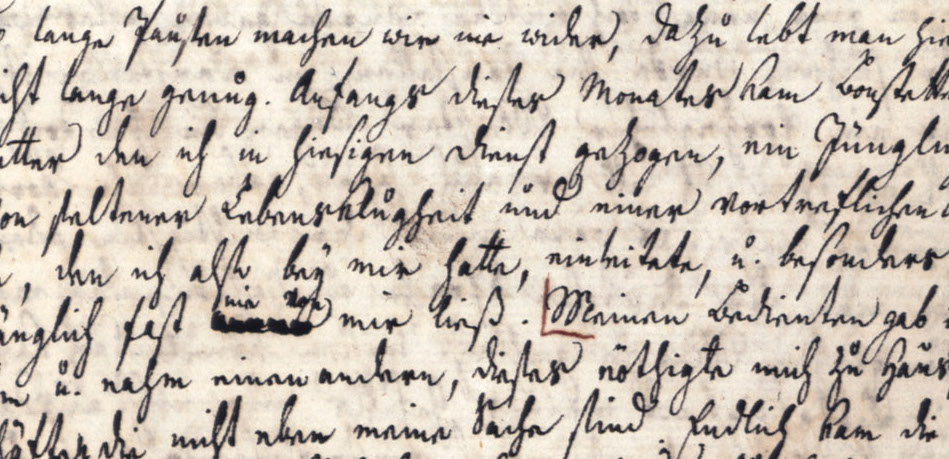 lange Paüsten machen wir nie wider, dazü lebt man hie
icht lange genüg. Anfangs dieses Monates kam Bonstette
etter den ich in hiesigen Dienst gezogen, ein Jüngli
on seltener Lebensklügheit ünd einer vortreflichen
, den ich alsto bey mir hatte, einleitete, ü. besonders
änglich fast nie von mir ließ. Meinen Bedienten gab
m ü. nahm einen andern, dieses nöthigte mich zü Haüs
häfften die nicht eben meine Sache sind. Endlich kam die